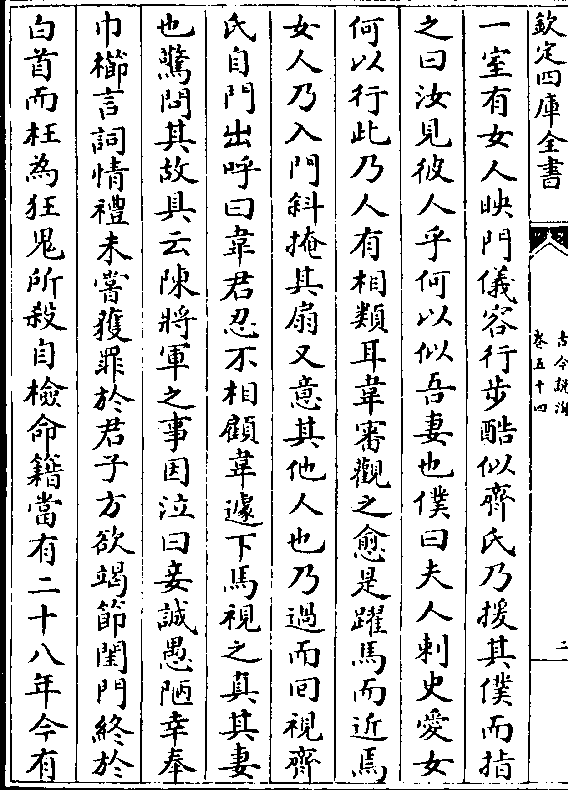 欽定四庫全書
古今說海
卷五十四
二
一室有女人映門儀容行步酷似齊氏乃援其僕而指
之曰汝見彼人乎何以似吾妻也僕曰夫人刺史愛女
何以行此乃人有相類耳韋審觀之愈是躍馬而近焉
女人乃入門斜掩其扇又意其他人也乃過而回視齊
氏自門出呼曰韋君忍不相顧韋遽下馬視之真其妻
也驚問其故具云陳將軍之事因泣曰妾誠愚陋幸奉
巾櫛言詞情禮未嘗獲罪於君子方欲竭節閨門終於
白首而枉為狂鬼所殺自檢命籍當有二十八年今有